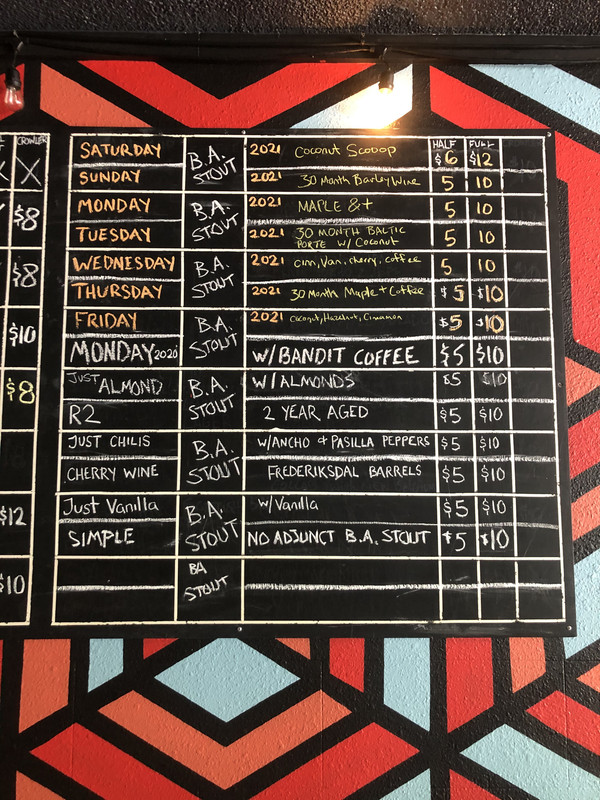 CROWLER HALF FULL
X X SATURDAY B.A. STOUT 2021 Coconut Scooop $6 $12
SUNDAY 2021 30 Month BarleyWine 5 10
$8 MONDAY B.A. STOUT 2021 MAPLE &+ 5 10
TUESDAY 2021 30 MONTH BALTIC PORTE W/ Coconut 5 10
$8 WEDNESDAY B.A. STOUT 2021 Cinn, Van, cherry, coffee 5 10
THURSDAY 2021 30 Month Maple + Coffee $5 $10
$10 FRIDAY B.A. STOUT 2021 Coconut, Hazelnut, Cinnamon $5 $10
MONDAY 2020 W/BANDIT COFFEE $5 $10
$8 JUST ALMOND B.A. STOUT W/ALMONDS $5 $10
R2 2 YEAR AGED $5 $10
JUST CHILIS B.A. STOUT W/ANCHO & PASILLA PEPPERS $5 $10
CHERRY WINE FREDERIKSDAL BARRELS $5 $10
$12 Just Vanilla B.A. STOUT W/Vanilla $5 $10
SIMPLE NO ADJUNCT B.A. STOUT $5 $10
$10 BA STOUT